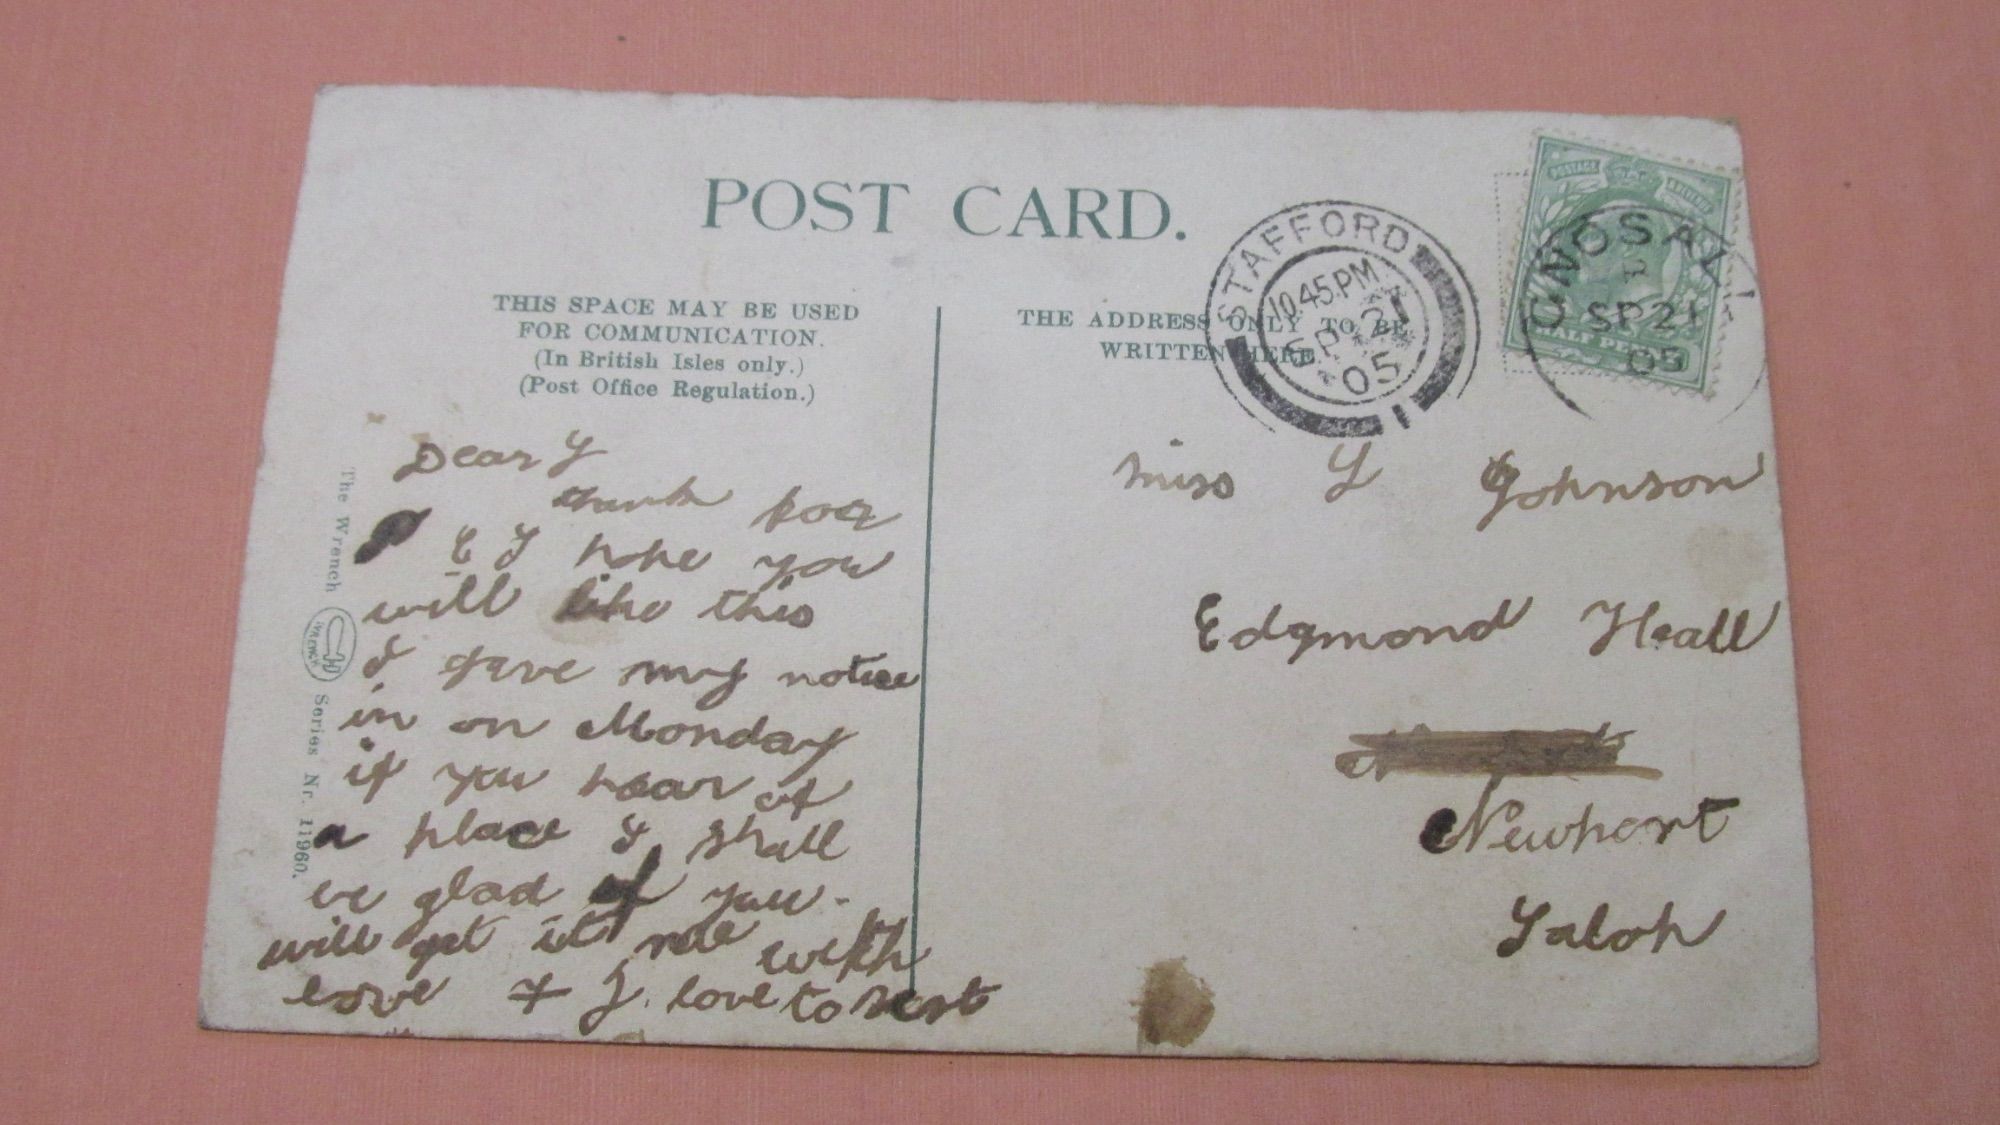 POST CARD.
THIS SPACE MAY BE USED
FOR COMMUNICATION.
(In British Isles only.)
(Post Office Regulation.)
THE ADDRESS ONLY TO BE
WRITTEN HERE
STAFFORD
10.45 PM
SP 21
05
1
POSTAGE
GNOSALL
SP 21
05
HALF PENNY
The Wrench
WRENCH
Series Nr. 11960.
Dear L
thank for
I hope you
will like this
I gave my notice
in on Monday
if you hear of
a place I shall
be glad if you
will get it me with
love + J. love to Bert
Miss L Johnson
Edgmond Hall
Newport
Salop